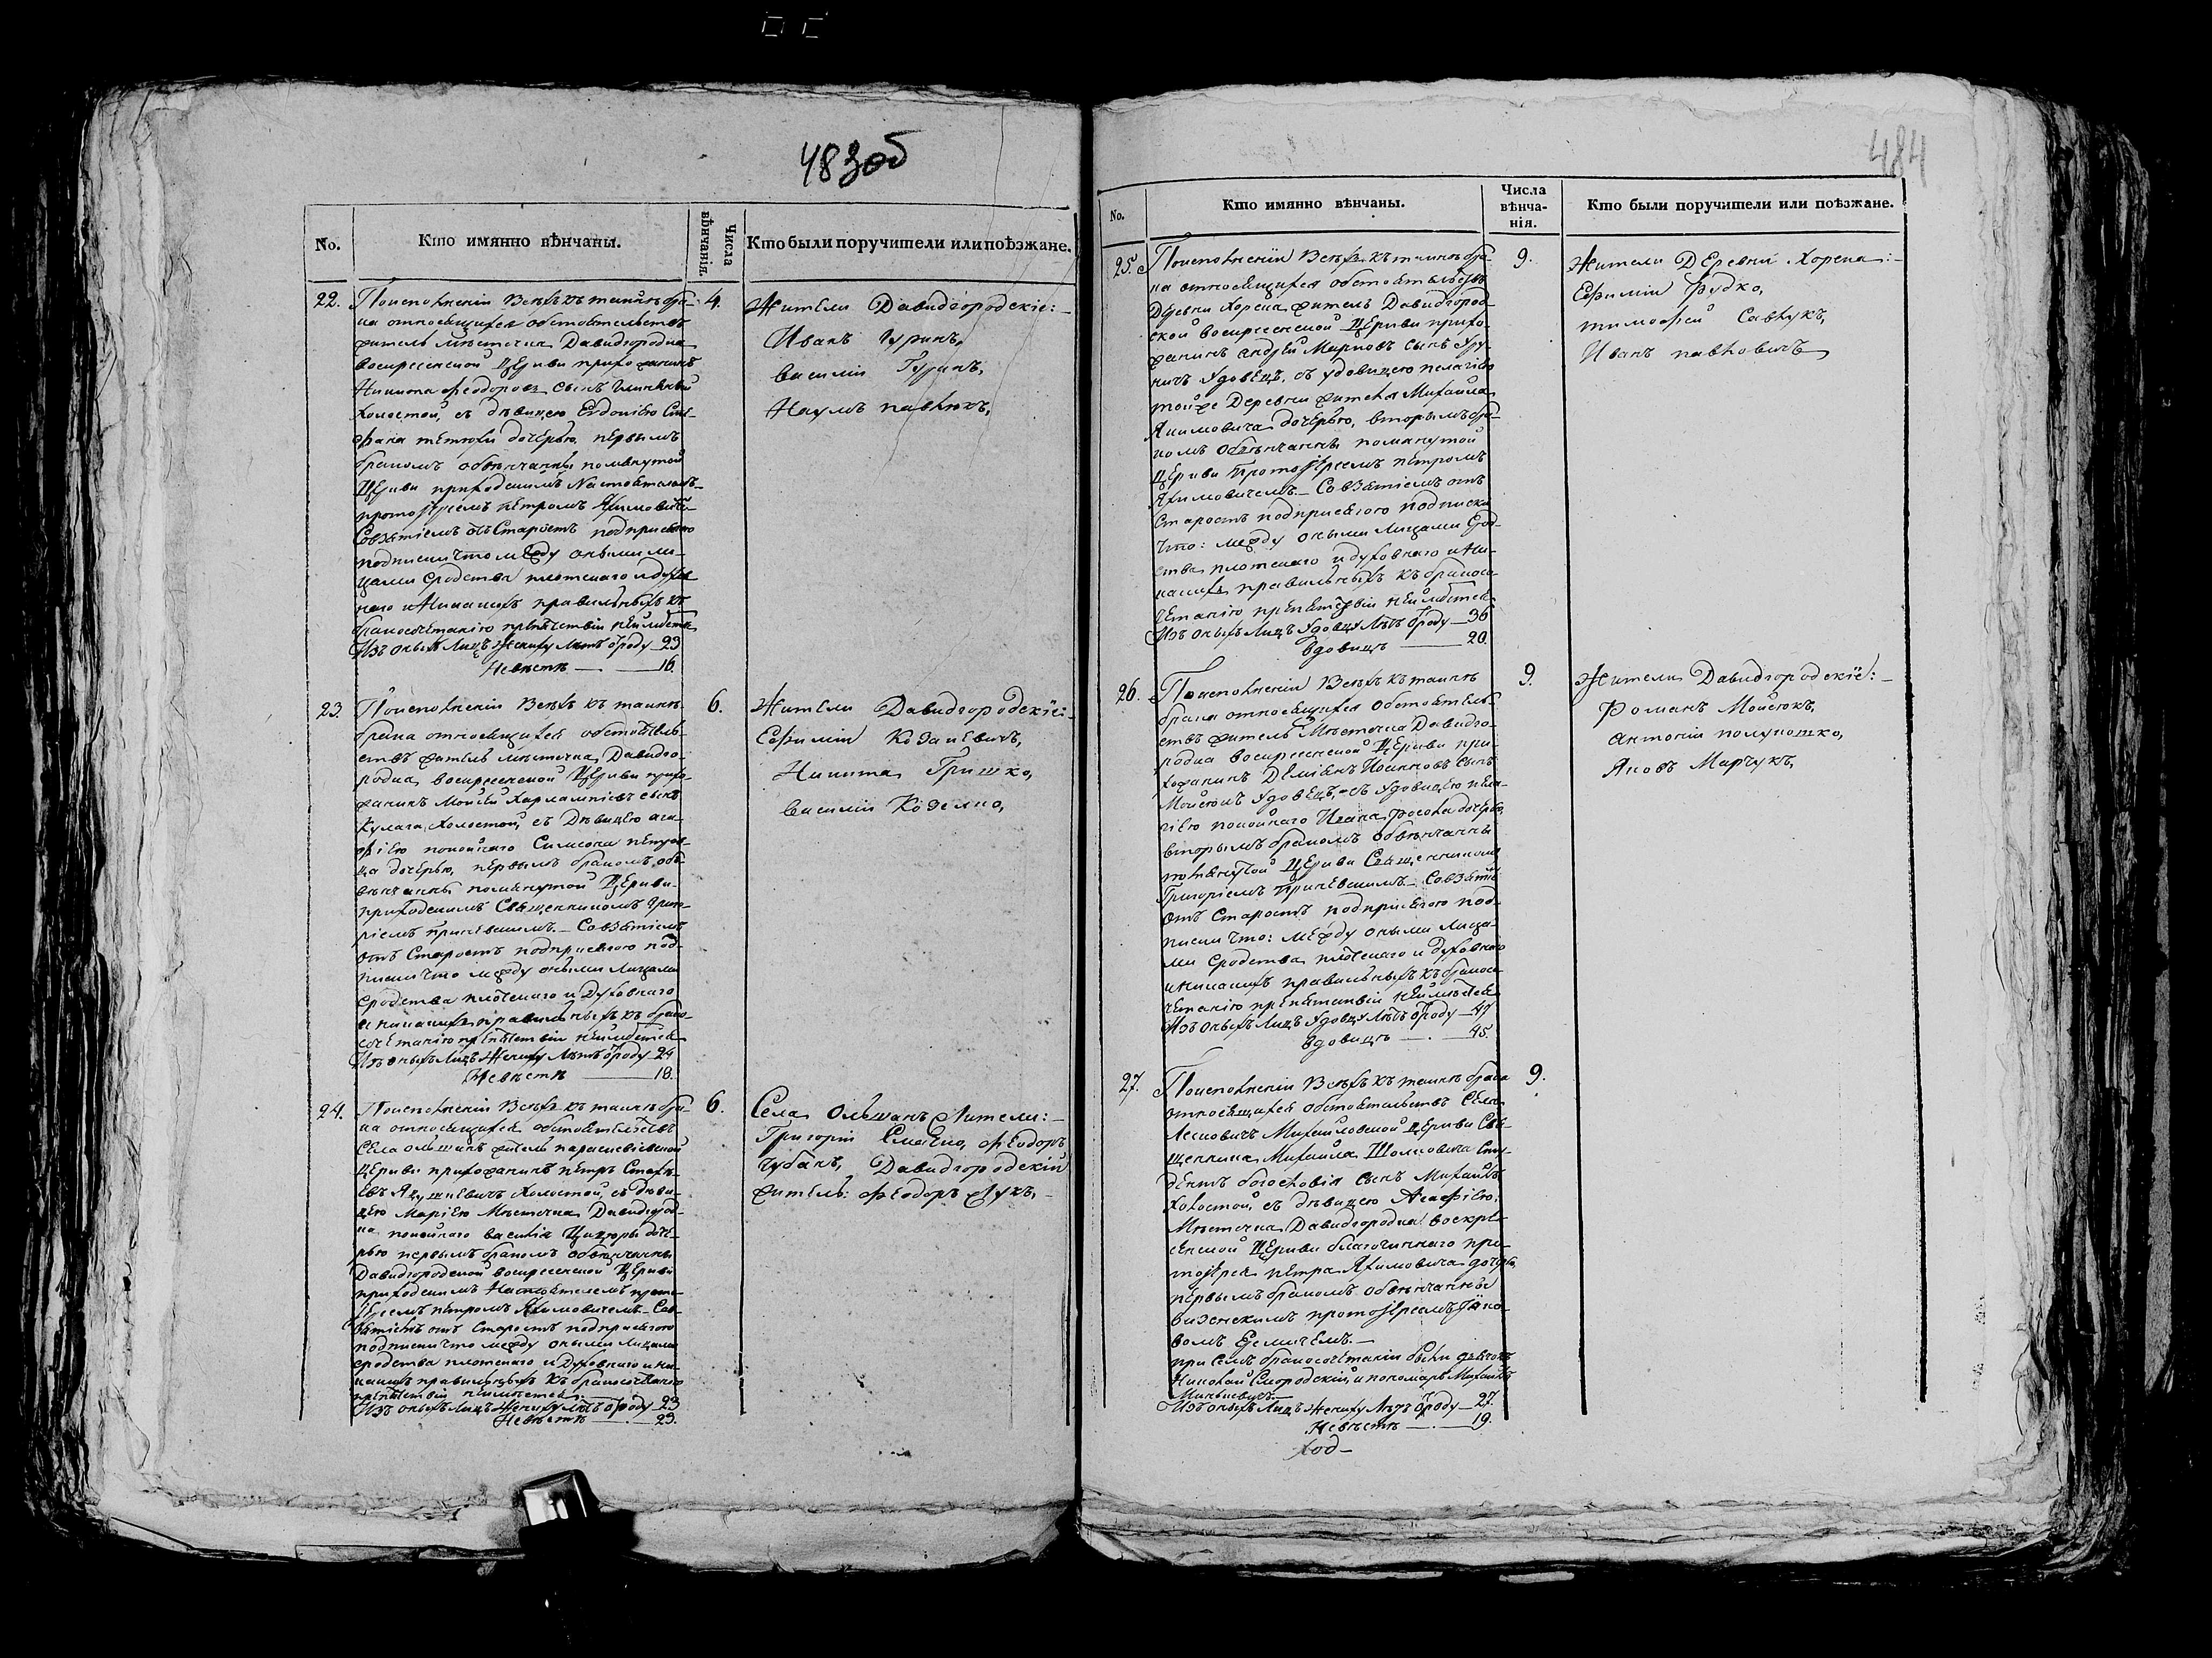 483об
No.
Кто имянно вѣнчаны.
Числа вѣнчанія.
Кто были поручители или поѣзжане.
22.
По исполненіи всѣхъ къ таинѣ бра-
ка относящихся обстоятельствъ
житель мѣстечка Давидгородка
воскресенской Церкви прихожанинъ
Никита Феодоровъ сынъ
холостой, съ дѣвицею Евдокіею Сте-
фана дочерью, первымъ
бракомъ обвѣнчанны помянутой
Церкви приходскимъ Настоятелемъ
протоіереемъ Петромъ Якимовиче-
Со взятіемъ отъ Старостъ подприсяжно
подписки что между оными ли-
цами сродства плотскаго и духов
наго и никакихъ правильныхъ къ
бракосочетанію препятствіи неимѣется
Изъ оныхъ Лицъ Жениху Лѣтъ отроду — 23
Невѣстѣ — 16.
4.
Жители Давидгородскіе:
Иванъ Гуринъ,
Василій Гуринъ,
Наумъ Павлюкъ,
23.
По исполненіи всѣхъ къ таинѣ
брака относящихся обстоятель-
ствъ житель мѣстечка Давидго-
родка, воскресенской Церкви прихо-
жанинъ Моисей Харлампіевъ сынъ
Кулага, холостой, съ Дѣвицею ага-
фіею покойнаго Симеона
дочерью, первымъ бракомъ, об-
вѣнчанны помянутой Церкви-
приходскимъ Священникомъ Григо-
ріемъ Со взятіемъ
отъ Старостъ подприсяжного под-
писки что между оными Лицами
сродства плотскаго и Духовнаго
и никакихъ правильныхъ къ брако-
сочетанію препятствіи неимѣется
Изъ оныхъ Лицъ Жениху Лѣтъ отроду 24
Невѣстѣ — 18.
6.
Жители Давидгородскіе:
Ефимій Козачевичъ,
Никита Гришко,
Василій Козелко,
24.
По исполненіи всѣхъ къ таинѣ бра-
ка относящихся обстоятельствъ
Села Ольшанъ житель параскевіевской
Церкви прихожанинъ Петръ
Холостой, съ дѣви-
цею Маріею Мѣстечка Давидгород-
ка покойнаго Василія доче-
рью первымъ бракомъ обвѣнчанны
Давидгородской воскресенской Церкви
приходскимъ Настоятелемъ прото-
іереемъ Петромъ Якимовичемъ — Совз-
ятіемъ отъ Старостъ подприсяжного
подписки что между оными Лицами
сродства плотскаго и Духовнаго и ни-
какихъ правильныхъ къ бракосочетанію
препятствіи неимѣется.
Изъ оныхъ Лицъ Жениху Лѣтъ отроду 23
Невѣстѣ — 23.
6.
Села Ольшанъ Жители:
Григорій Феодоръ
Чубакъ, Давидгородскій
житель: Феодоръ Лукъ,
484
No.
Кто имянно вѣнчаны.
Числа вѣнча-
нія.
Кто были поручители или поѣзжане.
25.
По исполненіи всѣхъ къ таинѣ бра-
ка относящихся обстоятельствъ
Деревни Хорска житель Давидгород-
ской воскресенской Церкви прихо-
жанинъ Андрей Марковъ сынъ
Удовецъ, съ удовицею пелагіею
тойже Деревни жителя Михаила
Якимовича дочерью, вторымъ бра-
комъ обвѣнчанны помянутой
Церкви Протоіереемъ Петромъ
Якимовичемъ. — Со взятіемъ отъ
Старостъ подприсяжного подписки
что: между оными Лицами Срод-
ства плотскаго и духовнаго и ни-
какихъ правильныхъ къ бракосо-
четанію препятствіи неимѣется
Изъ оныхъ Лицъ Удовцу Лѣтъ отроду — 36
Вдовицѣ — 20.
9.
Жители Деревни Хорска:
Ефимій Рудко,
Тимофей Савчукъ,
Иванъ Павловичъ
26.
По исполненіи всѣхъ къ таинѣ
брака относящихся обстоятель-
ствъ житель Мѣстечка Давидго-
родка воскресенской Церкви при-
хожанинъ Деміянъ Іоанновъ Сынъ
Моисюкъ Удовецъ, — съ Удовицею пела-
гіею покойнаго Ивана дочерью,
вторымъ бракомъ обвѣнчанны
помянутой Церкви Священникомъ
Григоріемъ Со взятіе
отъ Старостъ подприсяжного под-
писки что: между оными Лица-
ми сродства плотскаго и духовнаго
и никакихъ правильныхъ къ бракосо-
четанію препятствіи неимѣется
Изъ оныхъ Лицъ Удовцу Лѣтъ отроду — 47
Вдовицѣ — 45.
9.
Жители Давидгородскіе:
Романъ Моисюкъ,
Антоній полукошко,
Яковъ Марчукъ,
27.
По исполненіи всѣхъ къ таинѣ брака
относящихся обстоятельствъ Села
Лисковичъ Михайловской Церкви Свя-
щенника Михаила Шолковича Сту-
дентъ богословія Сынъ Михаилъ
Холостой, съ дѣвицею Агафіею,
Мѣстечка Давидгородка воскре-
сенской Церкви благочиннаго про-
тоіерея Петра Якимовича дочерью
первымъ бракомъ обвѣнчанны
протоіереемъ Іяко-
вомъ
при семъ бракосочетаніи были дьячокъ
Николай Смородскій, и пономарь Михаилъ
Минкевичъ
Изъ оныхъ Лицъ Жениху Лѣтъ отроду — 27.
Невѣстѣ — 19.
9.
ход-